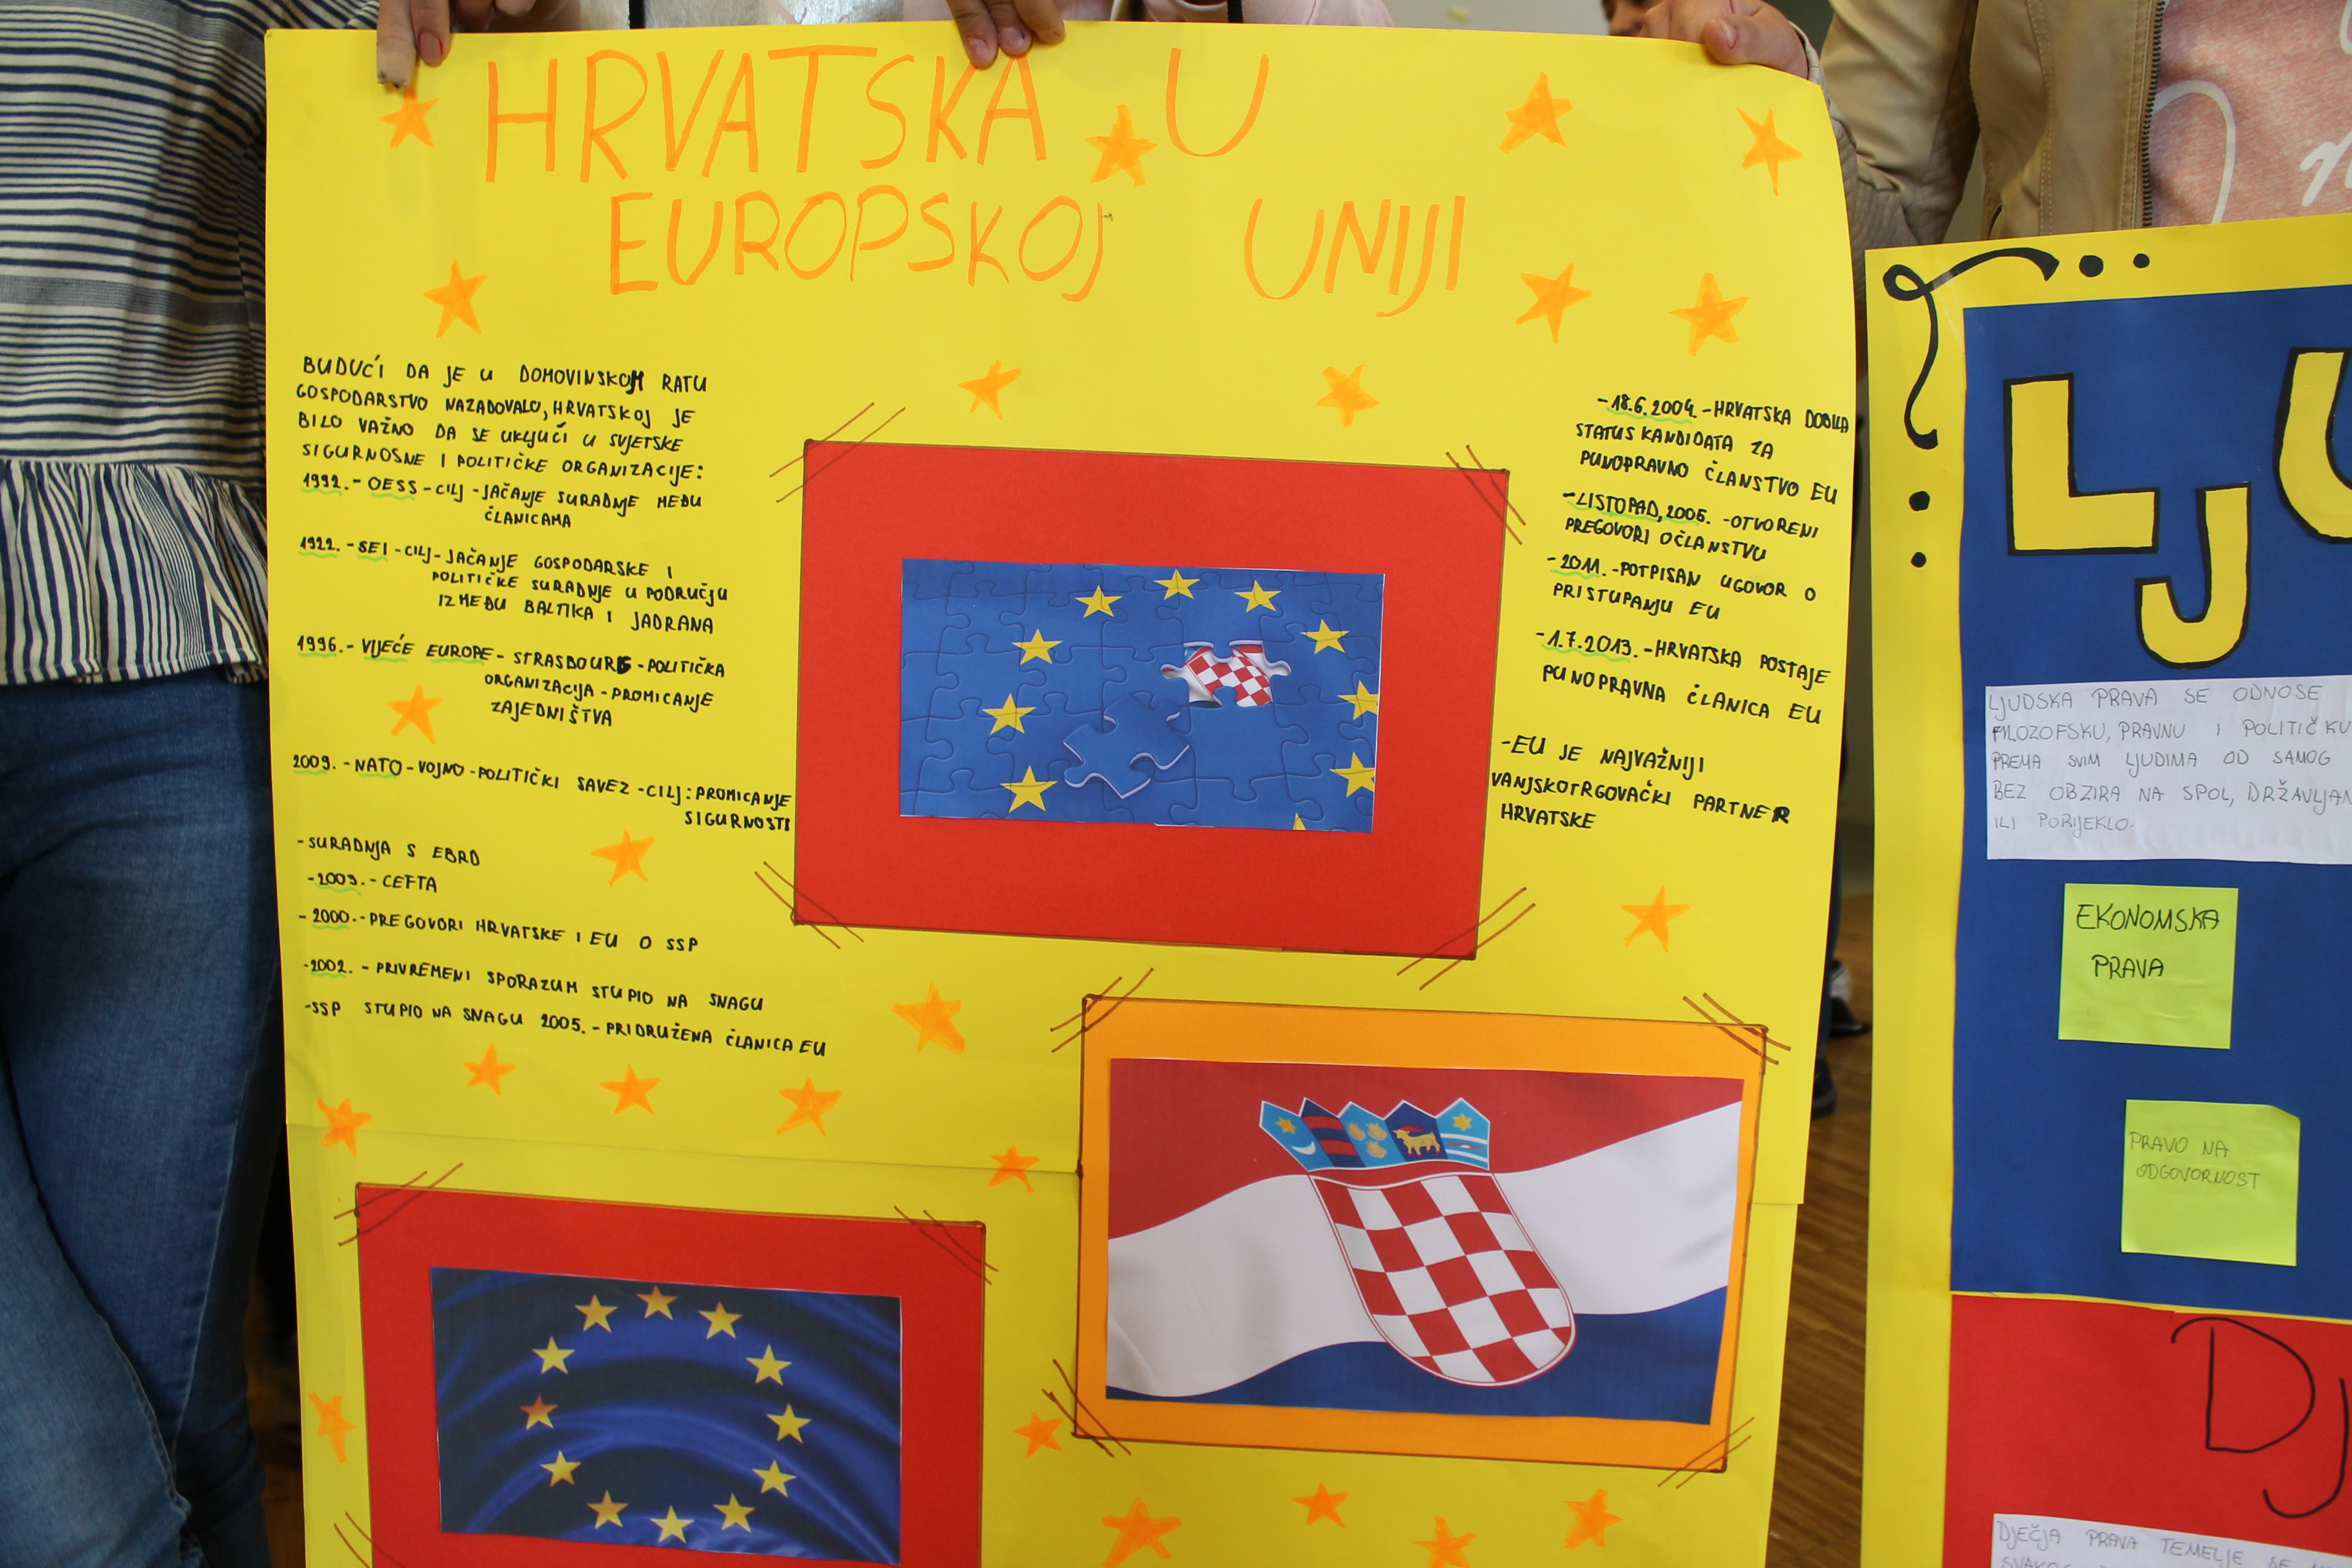 HRVATSKA U
EUROPSKOJ UNIJI
BUDUĆI DA JE U DOMOVINSKOM RATU
GOSPODARSTVO NAZADOVALO, HRVATSKOJ JE
BILO VAŽNO DA SE UKLJUČI U SVJETSKE
SIGURNOSNE I POLITIČKE ORGANIZACIJE:
1992. - OESS - CILJ - JAČANJE SURADNJE MEĐU
ČLANICAMA
1922. - SEI - CILJ - JAČANJE GOSPODARSKE I
POLITIČKE SURADNJE U PODRUČJU
IZMEĐU BALTIKA I JADRANA
1996. - VIJEĆE EUROPE - STRASBOURG - POLITIČKA
ORGANIZACIJA - PROMICANJE
ZAJEDNIŠTVA
2009. - NATO - VOJNO - POLITIČKI SAVEZ - CILJ: PROMICANJE
SIGURNOSTI
- SURADNJA S EBRD
- 2003. - CEFTA
- 2000. - PREGOVORI HRVATSKE I EU O SSP
- 2002. - PRIVREMENI SPORAZUM STUPIO NA SNAGU
- SSP STUPIO NA SNAGU 2005. - PRIDRUŽENA ČLANICA EU
- 18.6.2004. - HRVATSKA DOBILA
STATUS KANDIDATA ZA
PUNOPRAVNO ČLANSTVO EU
- LISTOPAD, 2005. - OTVORENI
PREGOVORI O ČLANSTVU
- 2011. - POTPISAN UGOVOR O
PRISTUPANJU EU
- 1.7.2013. - HRVATSKA POSTAJE
PUNOPRAVNA ČLANICA EU
- EU JE NAJVAŽNIJI
VANJSKOTRGOVAČKI PARTNER
HRVATSKE
LJU
LJUDSKA PRAVA SE ODNOSE
FILOZOFSKU, PRAVNU I POLITIČKU
PREMA SVIM LJUDIMA OD SAMOG
BEZ OBZIRA NA SPOL, DRŽAVLJAN
ILI PORIJEKLO.
EKONOMSKA
PRAVA
PRAVO NA
ODGOVORNOST
DJ
DJEČJA PRAVA TEMELJE